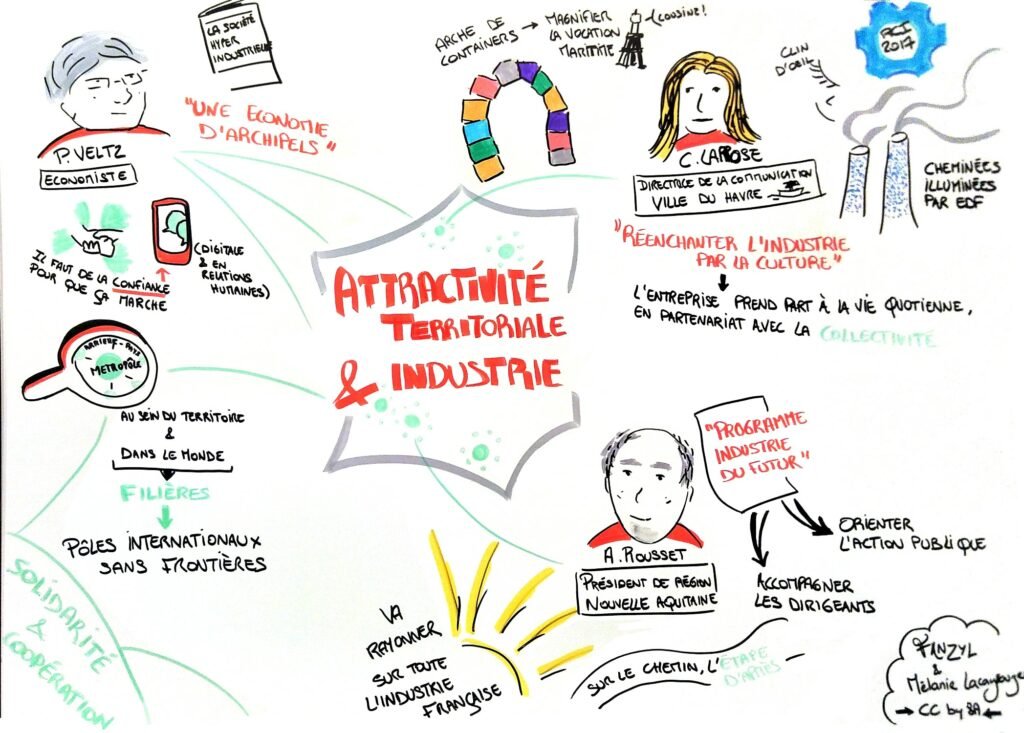 LA SOCIÉTÉ
HYPER
INDUSTRIELLE
"UNE ECONOMIE
D'ARCHIPELS"
P. VELTZ
ECONOMISTE
IL FAUT DE LA CONFIANCE
POUR QUE ÇA
MARCHE
(DIGITALE
& EN
RELATIONS
HUMAINES)
ARRIÈRE-PAYS
METROPÔLE
AU SEIN DU TERRITOIRE
&
DANS LE MONDE
FILIÈRES
PÔLES INTERNATIONAUX
SANS FRONTIÈRES
SOLIDARITÉ
&
COOPÉRATION
ARCHE DE
CONTAINERS
MAGNIFIER
LA VOCATION
MARITIME
(COUSINE!
ATTRACTIVITÉ
TERRITORIALE
& INDUSTRIE
C. LAROSE
DIRECTRICE DE LA COMMUNICATION
VILLE DU HAVRE
CLIN
D'OEIL
2017
CHEMINÉES
ILLUMINÉES
PAR EDF
"RÉENCHANTER L'INDUSTRIE
PAR LA CULTURE"
L'ENTREPRISE PREND PART À LA VIE QUOTIENNE,
EN PARTENARIAT AVEC LA COLLECTIVITÉ
A. ROUSSET
PRÉSIDENT DE RÉGION
NOUVELLE AQUITAINE
"PROGRAMME
INDUSTRIE
DU FUTUR"
ORIENTER
L'ACTION PUBLIQUE
ACCOMPAGNER
LES DIRIGEANTS
SUR LE CHEMIN, L'ÉTAPE
D'APRÈS
VA
RAYONNER
SUR TOUTE
L'INDUSTRIE
FRANÇAISE
FANZYL
&
Mélanie
CC by SA